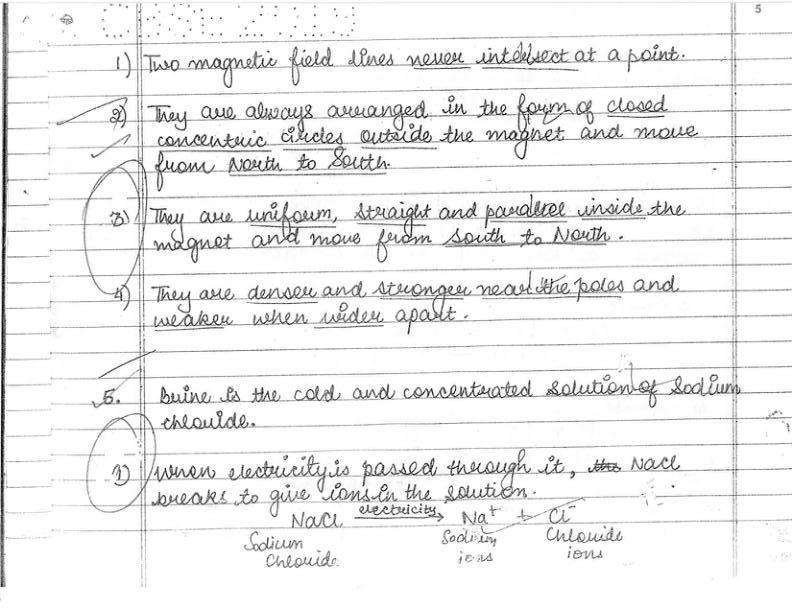 5
1) Two magnetic field lines never intersect at a point.
2) They are always arranged in the form of closed
concentric circles outside the magnet and move
from North to South.
3) They are uniform, straight and parallel inside the
magnet and move from South to North.
4) They are denser and stronger near the poles and
weaker when wider apart.
5. Brine is the cold and concentrated solution of Sodium
chloride.
1) When electricity is passed through it, the NaCl
breaks to give ions in the solution.
NaCl electricity → Na⁺ + Cl⁻
Sodium Sodium Chloride
Chloride. ions ions